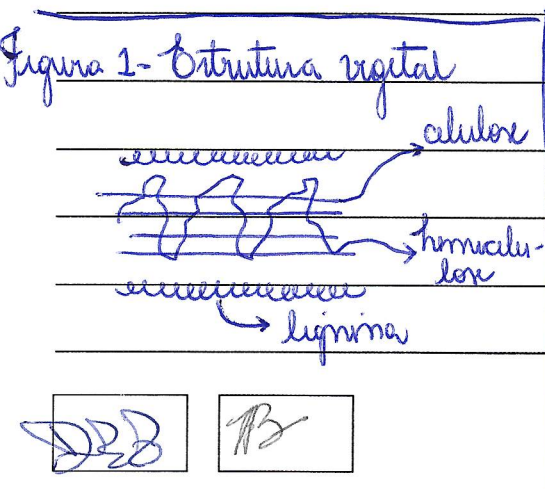 Figura 1- Estrutura vegetal
celulose
hemicelu-
lose
lignina